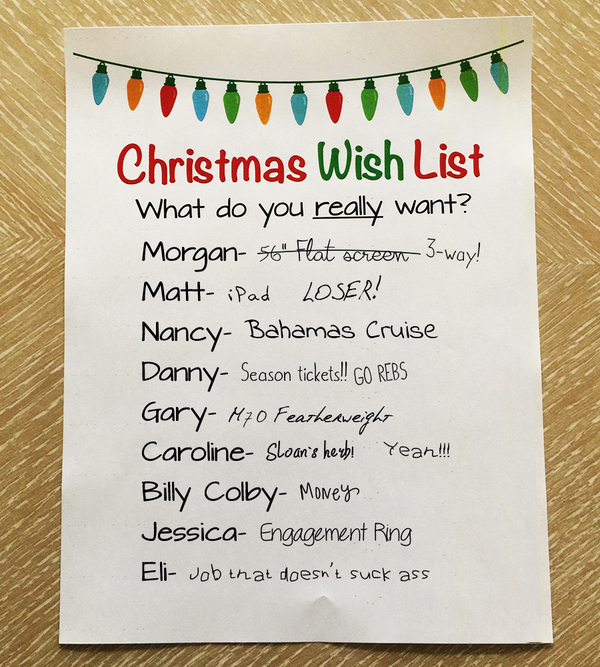 Christmas Wish List
What do you really want?
Morgan- 56" Flat screen 3-way!
Matt- iPad LOSER!
Nancy- Bahamas Cruise
Danny- Season tickets!! GO REBS
Gary- M70 Featherweight
Caroline- Sloan's herb! Yeah!!!
Billy Colby- Money
Jessica- Engagement Ring
Eli- Job that doesn't suck ass